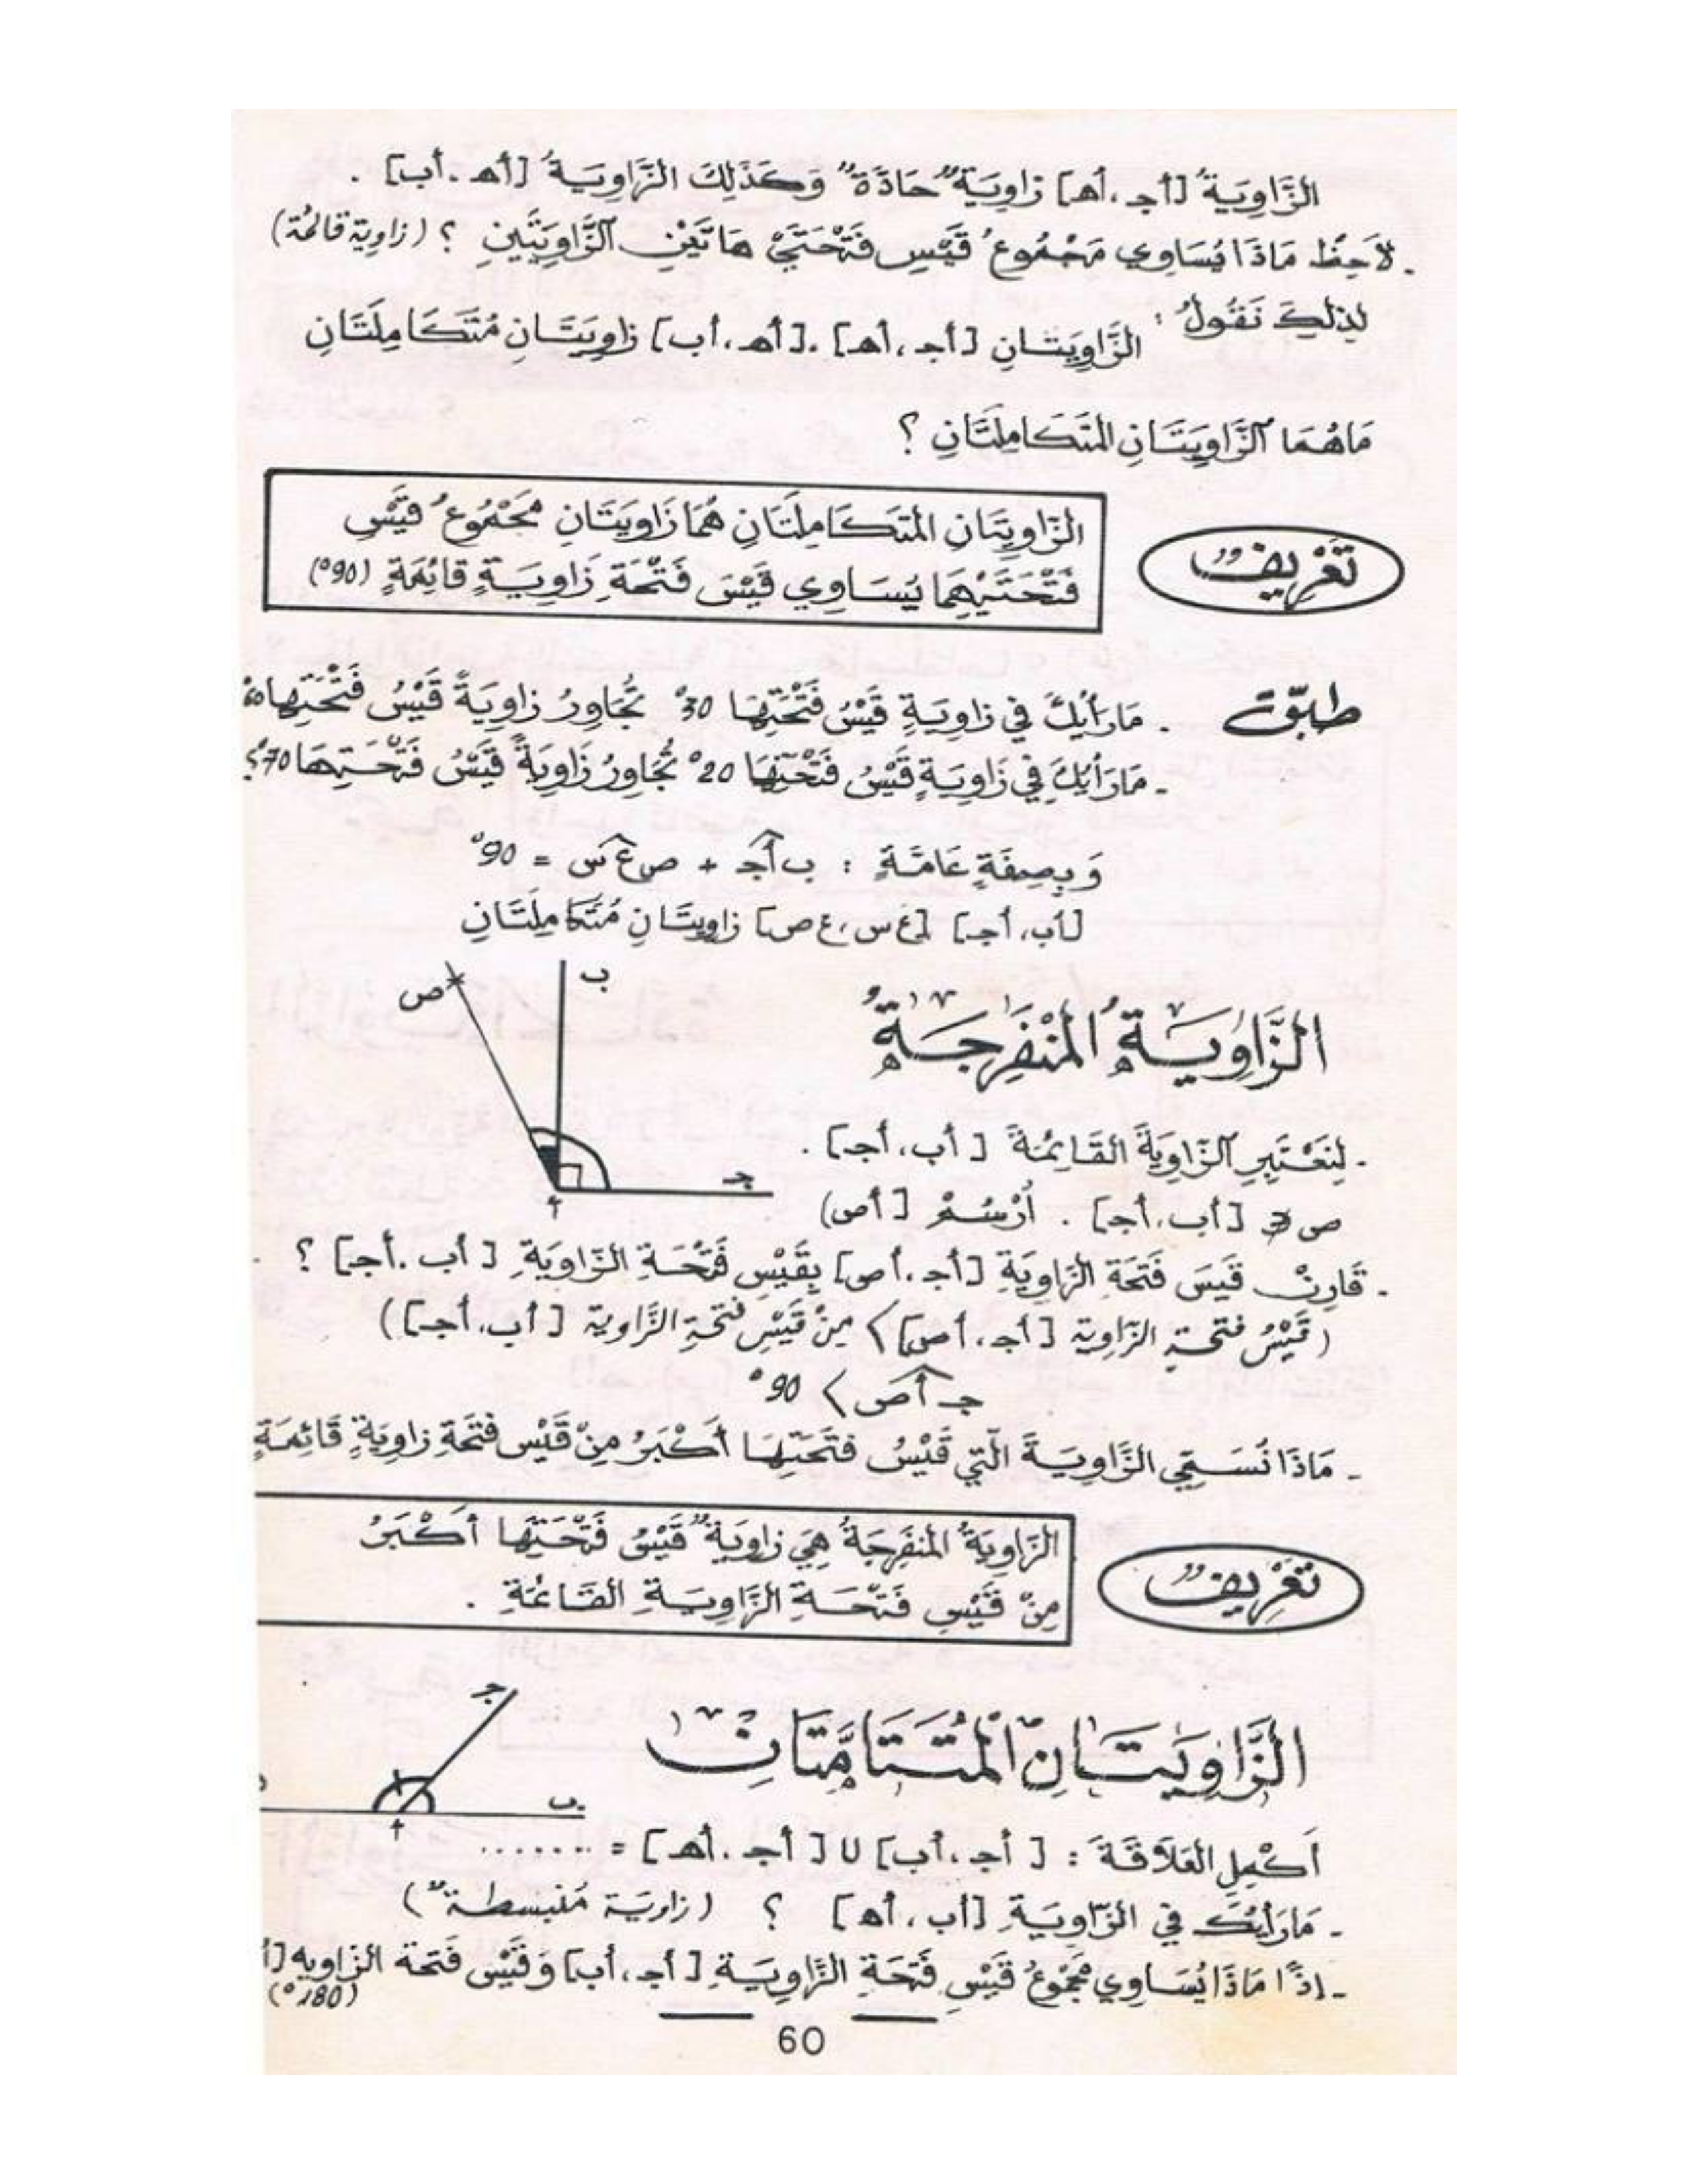 الزَّاوِيَةُ [أجـ، أهـ] زاوِيَةٌ حَادَّةٌ وَكَذَلِكَ الزَّاوِيَةُ [أهـ. أب] .
. لاَحِظْ مَاذَا يُسَاوِي مَجْمُوعُ قَيْسِ فَتْحَتَيْ هَاتَيْنِ الزَّاوِيَتَيْنِ ؟ (زاوِية قائمة)
لِذلِكَ نَقُولُ : الزَّاوِيَتَانِ [أجـ، أهـ] .[أهـ، أب] زاوِيَتَانِ مُتَكَامِلَتَانِ
مَاهُمَا الزَّاوِيَتَانِ المُتَكَامِلَتَانِ ؟
الزَّاوِيَتَانِ المُتَكَامِلَتَانِ هُمَا زَاوِيَتَانِ مَجْمُوعُ قَيْسِ
فَتْحَتَيْهِمَا يُسَاوِي قَيْسَ فَتْحَةِ زَاوِيَةٍ قَائِمَةٍ (90°)
تَعْرِيفٌ
طبّق
. مَارَأْيُكَ في زاوِيَةٍ قَيْسُ فَتْحَتِهَا 30° تُجَاوِرُ زاوِيَةً قَيْسُ فَتْحَتِها 60°
- مَارَأْيُكَ في زَاوِيَةٍ قَيْسُ فَتْحَتِهَا 20° تُجَاوِرُ زَاوِيَةً قَيْسُ فَتْحَتِهَا 70°؟
وَبِصِفَةٍ عَامَّةٍ : ب أ جـ + ص ع س = 90°
[أب، أجـ] [ع س، ع ص] زاوِيتَانِ مُتَكَامِلَتَانِ
ص
ب
جـ
أ
الزَّاوِيَةُ المُنْفَرِجَةُ
- لِنَعْتَبِرِ الزَّاوِيَةَ القَائِمَةَ [أب، أجـ] .
ص ∌ [أب، أجـ] . أُرْسُمْ [أص)
- قَارِنْ قَيسَ فَتْحَةِ الزَّاوِيَةِ [أجـ، أص] بِقَيْسِ فَتْحَةِ الزَّاوِيَةِ [أب. أجـ] ؟
(قَيْسُ فتحة الزَّاوِية [أجـ، أص] > مِنْ قَيْسِ فتحةِ الزَّاوية [أب، أجـ])
جـ أ ص > 90°
- مَاذَا نُسَمِّي الزَّاوِيَةَ الَّتِي قَيْسُ فَتْحَتِهَا أَكْبَرُ مِنْ قَيْسِ فَتْحَةِ زاوِيَةٍ قَائِمَةٍ
الزَّاوِيَةُ المُنفَرِجَةُ هِيَ زاوِيَةٌ قَيْسُ فَتْحَتِهَا أَكْبَرُ
مِنْ قَيْسِ فَتْحَةِ الزَّاوِيَةِ القَائِمَةِ .
تَعْرِيفٌ
الزَّاوِيَتَانِ المُتَتَامَّتَانِ
جـ
ب
أ
أَكْمِلِ العَلاَقَةَ : [أجـ، أب] U [أجـ. أهـ] = ........
- مَارَأْيُكَ في الزَّاوِيَةِ [أب، أهـ] ؟ (زاوِيَة مُنْبسطةٌ)
- إذًا مَاذَا يُسَاوِي مَجْمُوعُ قَيْسِ فَتْحَةِ الزَّاوِيَةِ [أجـ، أب] وَقَيْسِ فَتحة الزَّاوِيه [أ
(180°)
60